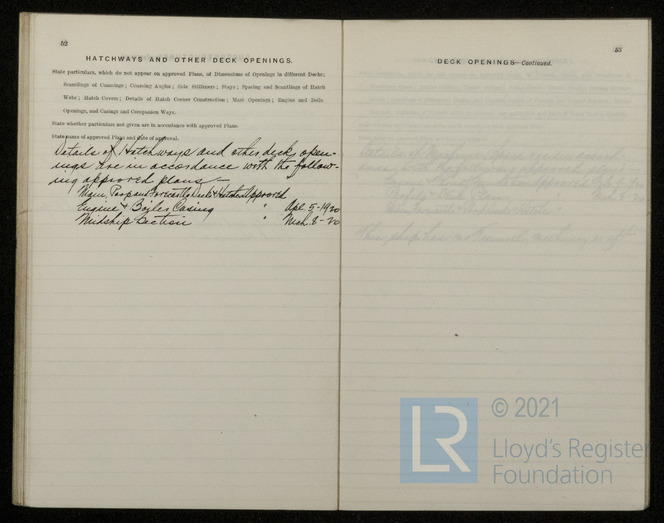 52
HATCHWAYS AND OTHER DECK OPENINGS.
State particulars, which do not appear on approved Plans, of Dimensions of Openings in different Decks;
Scantlings of Coamings; Coaming Angles; Side Stiffeners; Stays; Spacing and Scantlings of Hatch
Webs; Hatch Covers; Details of Hatch Corner Construction; Mast Openings; Engine and Boiler
Openings, and Casings and Companion Ways.
State whether particulars not given are in accordance with approved Plans.
State name of approved Plans and date of approval.
Details of Hatchways and other deck open-
ings are in accordance with the follow-
ing approved plans —
Main, Poop and Forecastle Decks & Hatches Approved
Engine & Boiler Casing " Apl. 5-1920
Midship Section " Mch. 8-20
53
DECK OPENINGS—Continued.
This ship has no
LR
© 2021
Lloyd's Register
Foundation